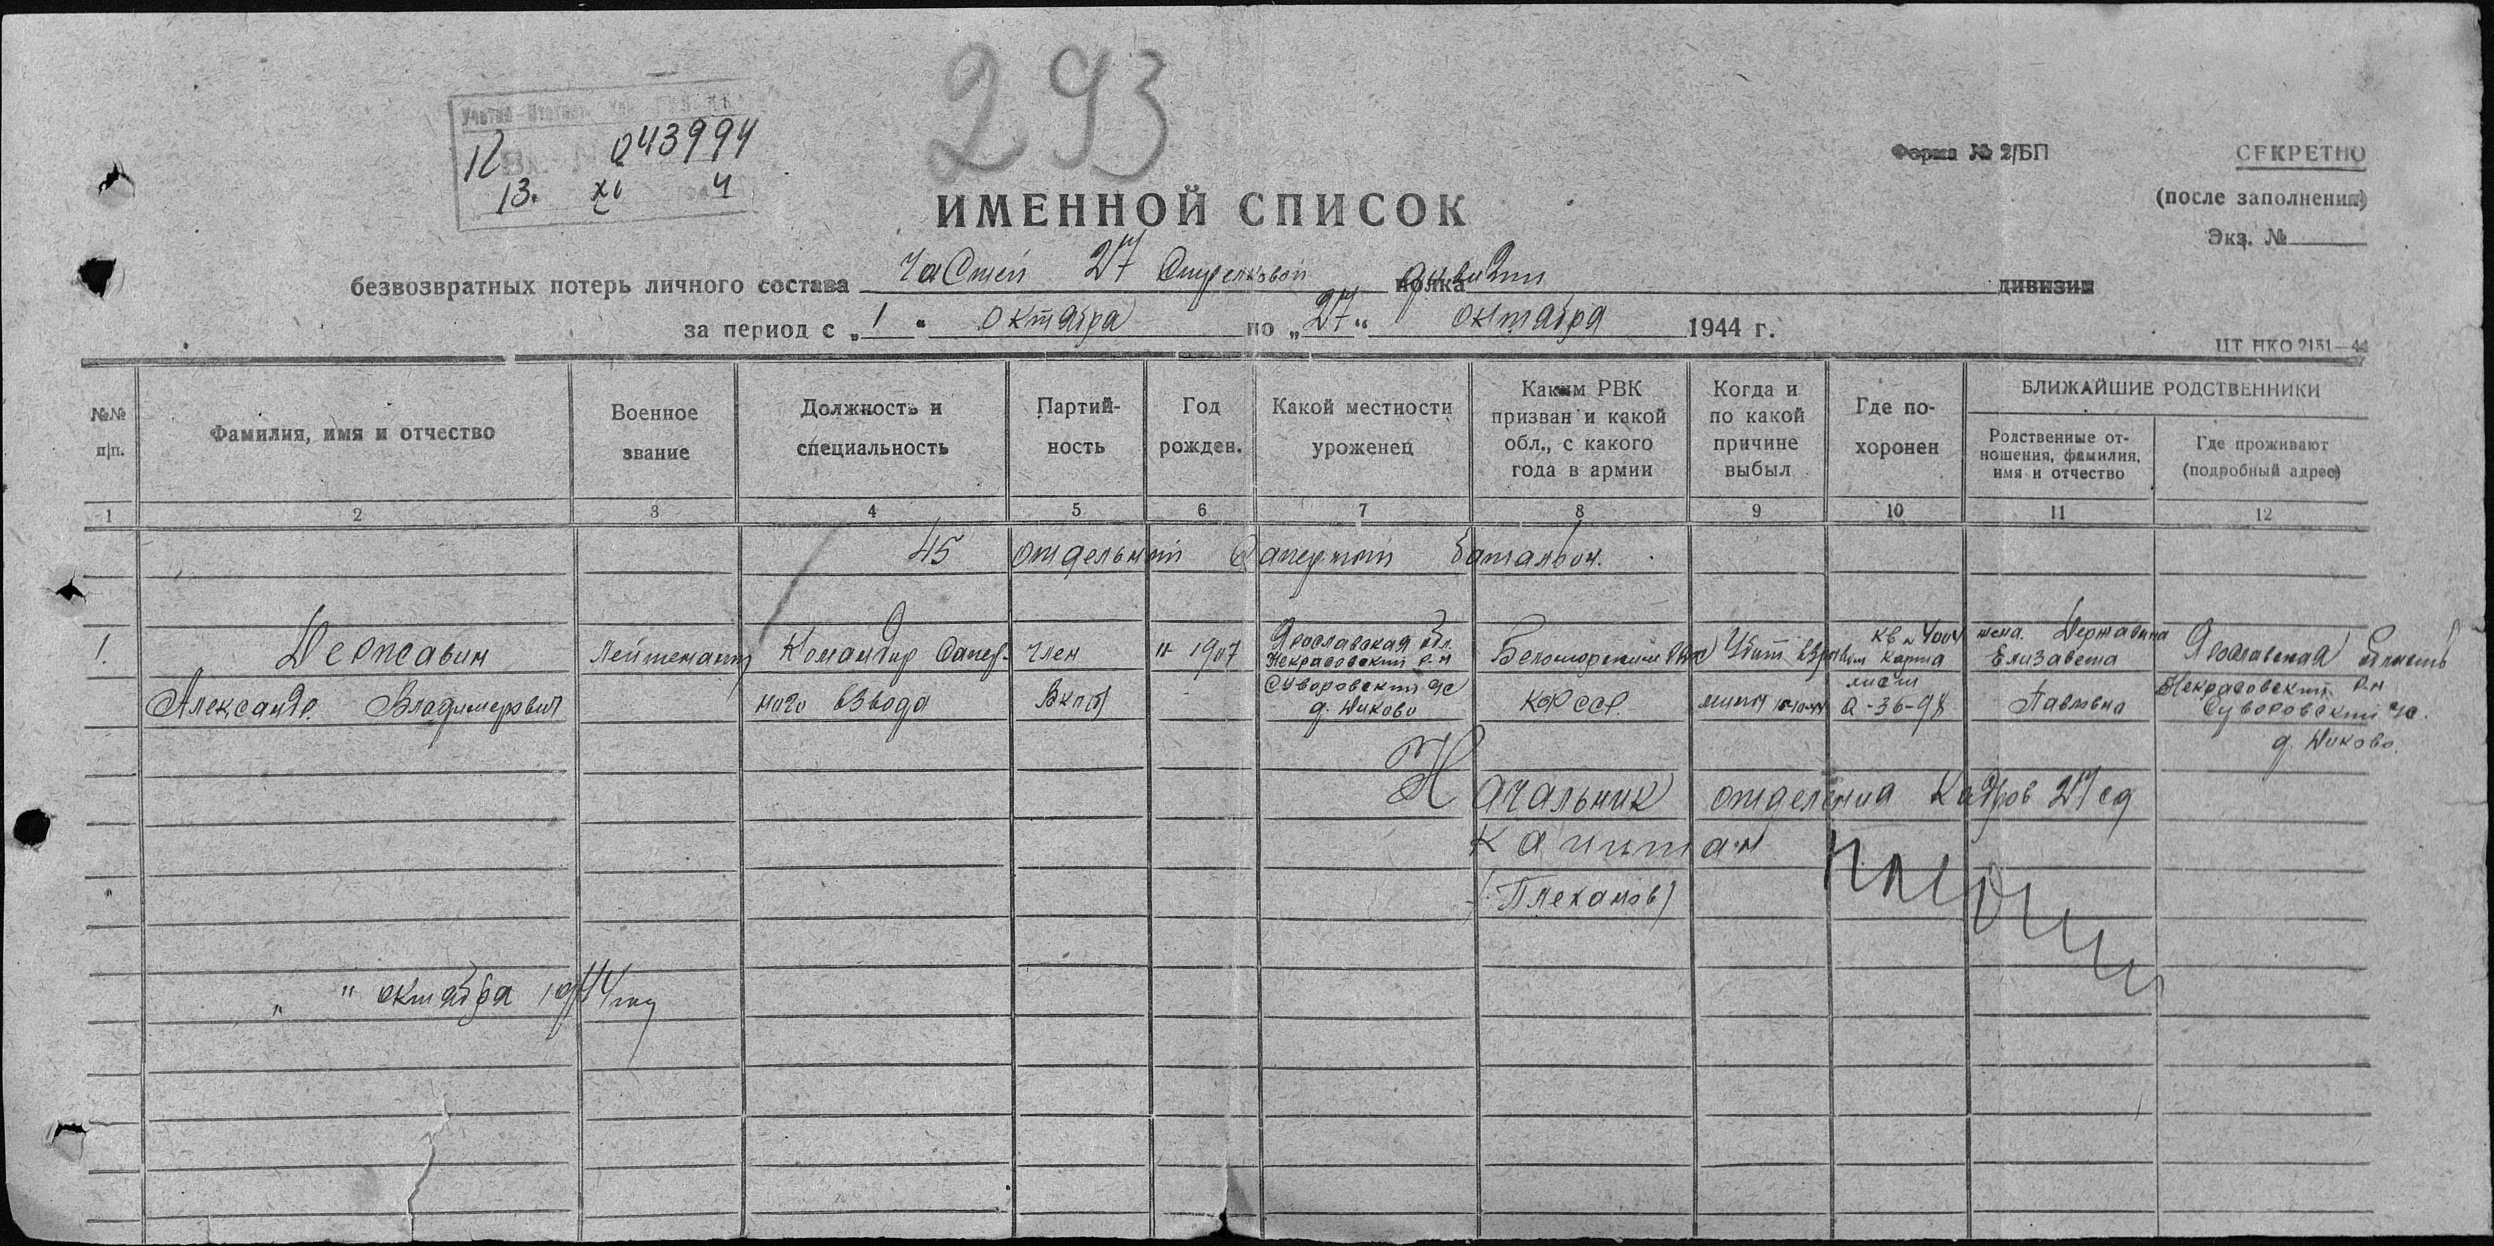 293
Учетно-
043994
13. XI 4
Форма № 2/БП
СЕКРЕТНО
(после заполнения)
Экз. №
ИМЕННОЙ СПИСОК
безвозвратных потерь личного состава частей 27 стрелковой полка дивизии дивизии
за период с „1“ октября по „27“ октября 1944 г.
ЦТ НКО 2151—44
№№ п|п.
Фамилия, имя и отчество
Военное звание
Должность и специальность
Партий-ность
Год рожден.
Какой местности уроженец
Каким РВК призван и какой обл., с какого года в армии
Когда и по какой причине выбыл
Где по-хоронен
БЛИЖАЙШИЕ РОДСТВЕННИКИ
Родственные от-ношения, фамилия, имя и отчество
Где проживают (подробный адрес)
1 2 3 4 5 6 7 8 9 10 11 12
45 отдельный саперный батальон.
1. Державин Александр Владимирович
Лейтенант
Командир сапер-ного взвода
член ВКП(б)
1907
Ярославская обл. Некрасовский р-н Суворовский с/с д. Диково
Беломорским РВК КФССР.
Убит взрывом мины 10-44
кв 4004 карта лист Q-36-98
жена. Державина Елизавета Павловна
Ярославская область Некрасовский р-н Суворовский с/с. д. Диково.
Начальник отделения Кадров 27 сд
Капитан
(Плеханов)
„ “ октября 1944 год